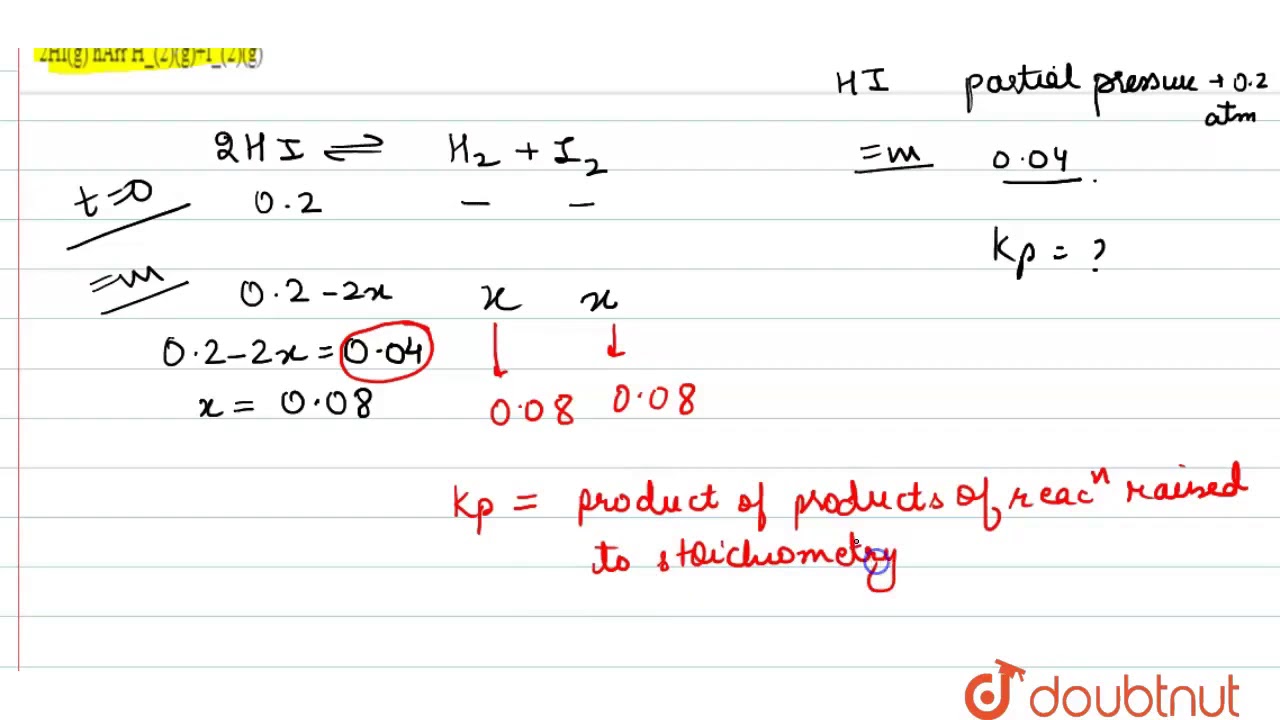 2HI(g) hArr H_(2)(g)+I_(2)(g)
HI partial pressure → 0.2
atm
=m 0.04
Kp = ?
2HI ⇌ H2 + I2
t=0 0.2 – –
=m 0.2-2x x x
0.2-2x = 0.04
x = 0.08 0.08 0.08
Kp = product of products of reacn raised
to stoichiometry
doubtnut